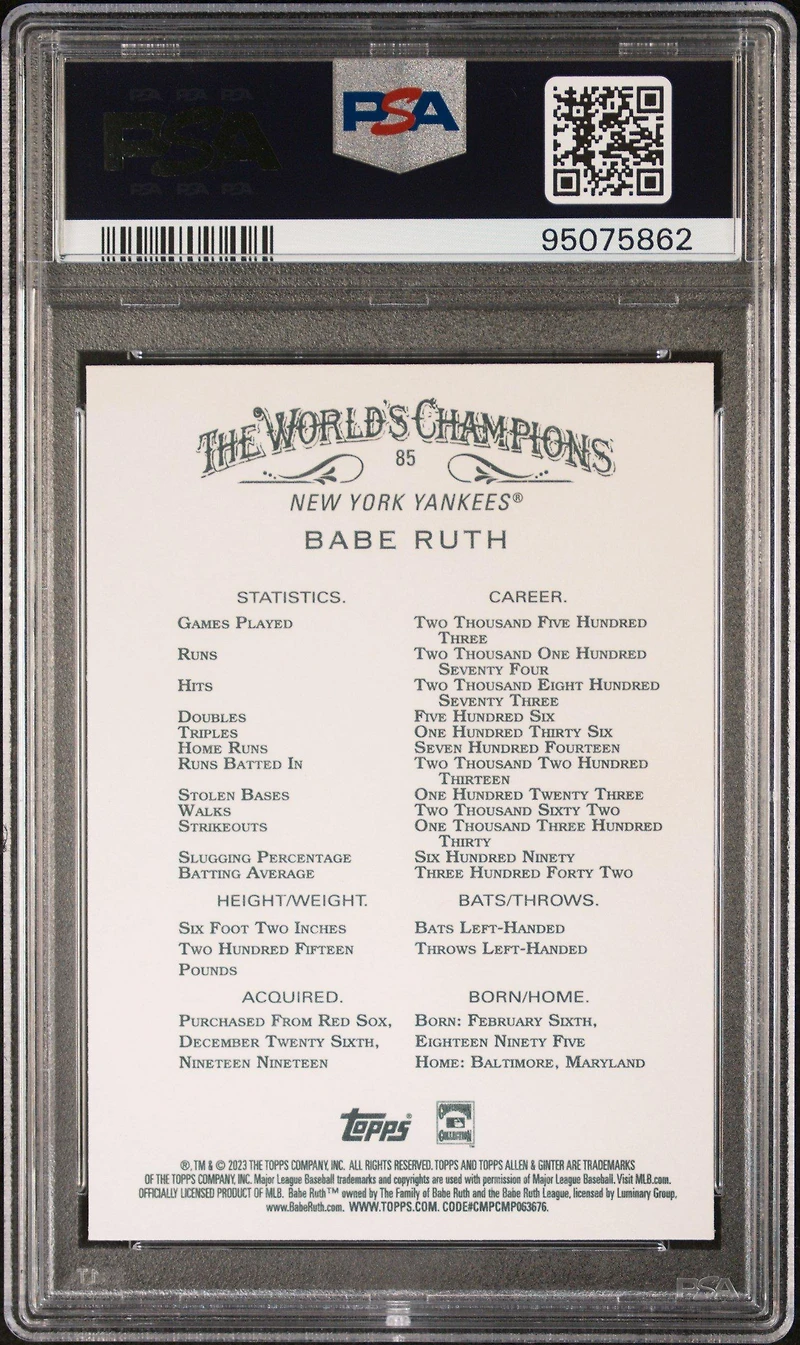 PSA PSA PSA
PSA
PSA PSA PSA
PSA
95075862
THE WORLD'S CHAMPIONS
85
NEW YORK YANKEES®
BABE RUTH
STATISTICS. CAREER.
GAMES PLAYED TWO THOUSAND FIVE HUNDRED
THREE
RUNS TWO THOUSAND ONE HUNDRED
SEVENTY FOUR
HITS TWO THOUSAND EIGHT HUNDRED
SEVENTY THREE
DOUBLES FIVE HUNDRED SIX
TRIPLES ONE HUNDRED THIRTY SIX
HOME RUNS SEVEN HUNDRED FOURTEEN
RUNS BATTED IN TWO THOUSAND TWO HUNDRED
THIRTEEN
STOLEN BASES ONE HUNDRED TWENTY THREE
WALKS TWO THOUSAND SIXTY TWO
STRIKEOUTS ONE THOUSAND THREE HUNDRED
THIRTY
SLUGGING PERCENTAGE SIX HUNDRED NINETY
BATTING AVERAGE THREE HUNDRED FORTY TWO
HEIGHT/WEIGHT. BATS/THROWS.
SIX FOOT TWO INCHES BATS LEFT-HANDED
TWO HUNDRED FIFTEEN THROWS LEFT-HANDED
POUNDS
ACQUIRED. BORN/HOME.
PURCHASED FROM RED SOX, BORN: FEBRUARY SIXTH,
DECEMBER TWENTY SIXTH, EIGHTEEN NINETY FIVE
NINETEEN NINETEEN HOME: BALTIMORE, MARYLAND
Topps® COOPERSTOWN COLLECTION™
®, TM & © 2023 THE TOPPS COMPANY, INC. ALL RIGHTS RESERVED. TOPPS AND TOPPS ALLEN & GINTER ARE TRADEMARKS
OF THE TOPPS COMPANY, INC. Major League Baseball trademarks and copyrights are used with permission of Major League Baseball. Visit MLB.com.
OFFICIALLY LICENSED PRODUCT OF MLB. Babe Ruth™ owned by The Family of Babe Ruth and the Babe Ruth League, licensed by Luminary Group,
www.BabeRuth.com. WWW.TOPPS.COM. CODE#CMPCMP063676.
PSA